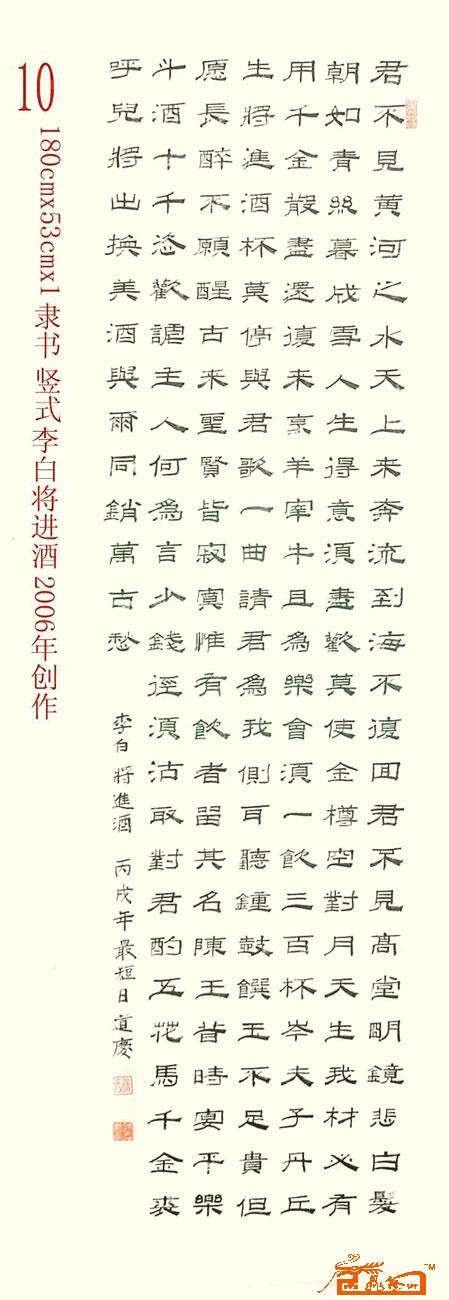 君不見黄河之水天上来奔流到海不復回君不見高堂明鏡悲白髮
朝如青絲暮成雪人生得意須盡歡莫使金樽空對月天生我材必有
用千金散盡還復来烹羊宰牛且為樂會須一飲三百杯岑夫子丹丘
生將進酒杯莫停與君歌一曲請君為我側耳聽鐘鼓饌玉不足貴但
愿長醉不願醒古来聖賢皆寂寞惟有飲者留其名陳王昔時宴平樂
斗酒十千恣歡謔主人何為言少錢徑須沽取對君酌五花馬千金裘
呼兒將出換美酒與爾同銷萬古愁
李白將進酒 丙戌年最短日道慶
10
180cmx53cmx1 隶书 竖式李白将进酒 2006年创作